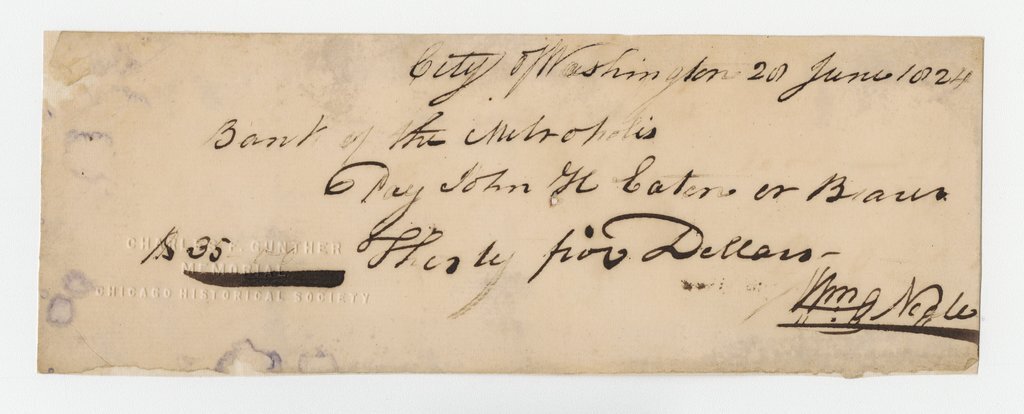 City of Washington 28 June 1824
Bank of the Metropolis
Pay John H Eaton or Bearer
$35 Thirty five Dollars
Wm A
CHARLES F. GUNTHER
MEMORIAL
CHICAGO HISTORICAL SOCIETY